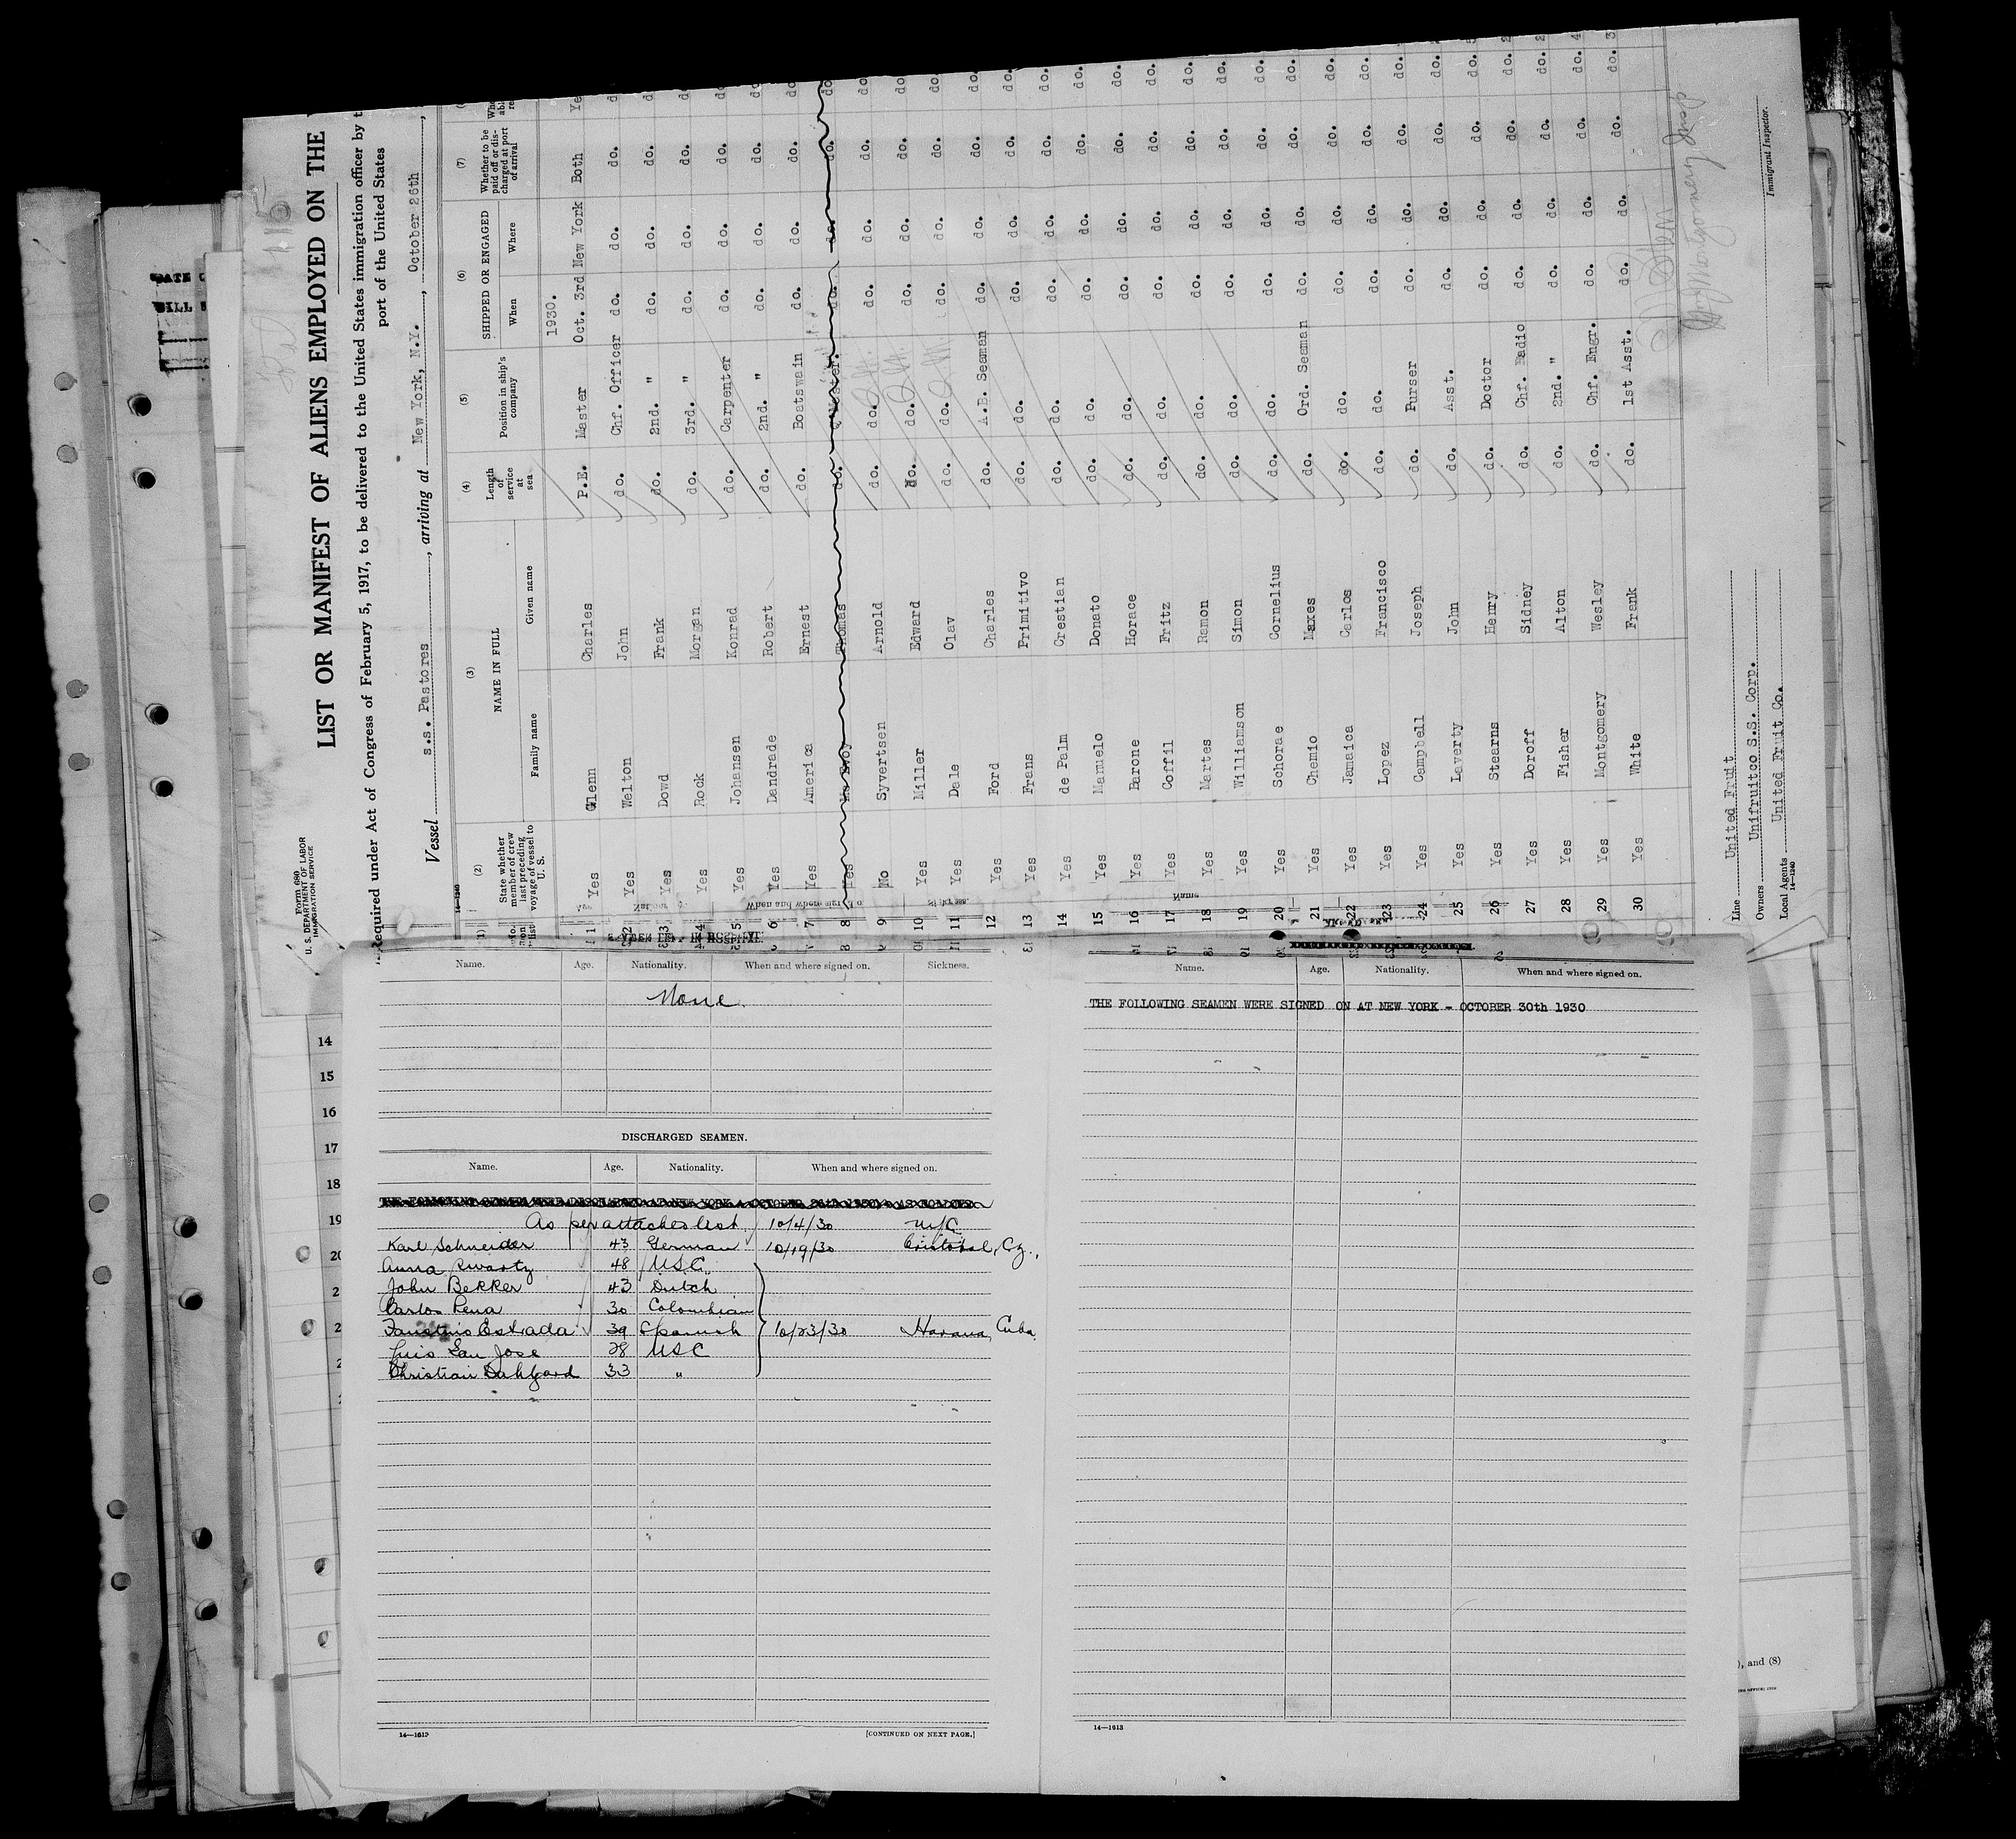 Form 680
U. S. DEPARTMENT OF LABOR
IMMIGRATION SERVICE
115
LIST OR MANIFEST OF ALIENS EMPLOYED ON THE
Required under Act of Congress of February 5, 1917, to be delivered to the United States immigration officer by t
port of the United States
Vessel s.s. Pastores, arriving at New York, N.Y., October 26th,
14-1240
(1) (2) (3) (4) (5) (6) (7)
State whether member of crew last preceding voyage of vessel to U. S.
NAME IN FULL
Family name Given name
Length of service at sea
Position in ship's company
SHIPPED OR ENGAGED
When Where
Whether to be paid off or discharged at port of arrival
1930.
1 Yes Glenn Charles P.E. Master Oct. 3rd New York Both Ye
2 Yes Welton John do. Chf. Officer do. do. do.
3 Yes Dowd Frank do. 2nd. " do. do. do.
4 Yes Rock Morgan do. 3rd. " do. do. do.
5 Yes Johansen Konrad do. Carpenter do. do. do.
6 Yes Dandrade Robert do. 2nd. " do. do. do.
7 Yes America Ernest do. Boatswain do. do. do.
8 Yes Thomas do. do. do. do.
9 No Syvertsen Arnold do. do. do. do. do. do.
10 Yes Miller Edward do. do. do. do. do. do.
11 Yes Dale Olav do. do. do. do. do. do.
12 Yes Ford Charles do. A.B. Seaman do. do. do. do.
13 Yes Frans Primitivo do. do. do. do. do. do.
14 Yes de Palm Crestian do. do. do. do. do. do.
15 Yes Manuelo Donato do. do. do. do. do. do.
16 Yes Barone Horace do. do. do. do. do. do.
17 Yes Coffil Fritz do. do. do. do. do. do.
18 Yes Martes Ramon do. do. do. do. do. do.
19 Yes Williamson Simon do. do. do. do. do. do.
20 Yes Schorae Cornelius do. do. do. do. do. do.
21 Yes Chemio Maxes do. Ord. Seaman do. do. do. do.
22 Yes Jamaica Carlos do. do. do. do. do. do.
23 Yes Lopez Francisco do. do. do. do. do. do.
24 Yes Campbell Joseph do. Purser do. do. do. do.
25 Yes Laverty John do. Asst. do. do. do. do.
26 Yes Stearns Henry do. Doctor do. do. do. do.
27 Yes Doroff Sidney do. Chf. Radio do. do. do. do.
28 Yes Fisher Alton do. 2nd. " do. do. do. do.
29 Yes Montgomery Wesley do. Chf. Engr. do. do. do. do.
30 Yes White Frank do. 1st Asst. do. do. do. do.
Line United Fruit
Owners Unifruitco S.S. Corp.
Local Agents United Fruit Co.
14-1240
Montgomery Insp
Immigrant Inspector.
Name. Age. Nationality. When and where signed on. Sickness.
None
DISCHARGED SEAMEN.
Name. Age. Nationality. When and where signed on.
As per attached list 10/4/30 NYC
Karl Schneider 43 German 10/19/30 Cristobal, Cz.,
Anna Swartz 48 USC
John Bekker 43 Dutch
Carlos Pena 30 Colombian
Faustino Estrada 39 Spanish 10/23/30 Havana, Cuba
Luis San Jose 28 USC
Christian Dahlgard 33 "
14—1613 [CONTINUED ON NEXT PAGE.]
Name. Age. Nationality. When and where signed on.
THE FOLLOWING SEAMEN WERE SIGNED ON AT NEW YORK - OCTOBER 30th 1930
14—1613
14
15
16
17
18
19
), and (8)